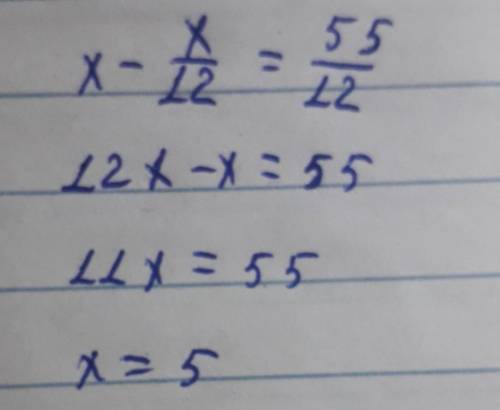 x - x/12 = 55/12
12x - x = 55
11x = 55
x = 5